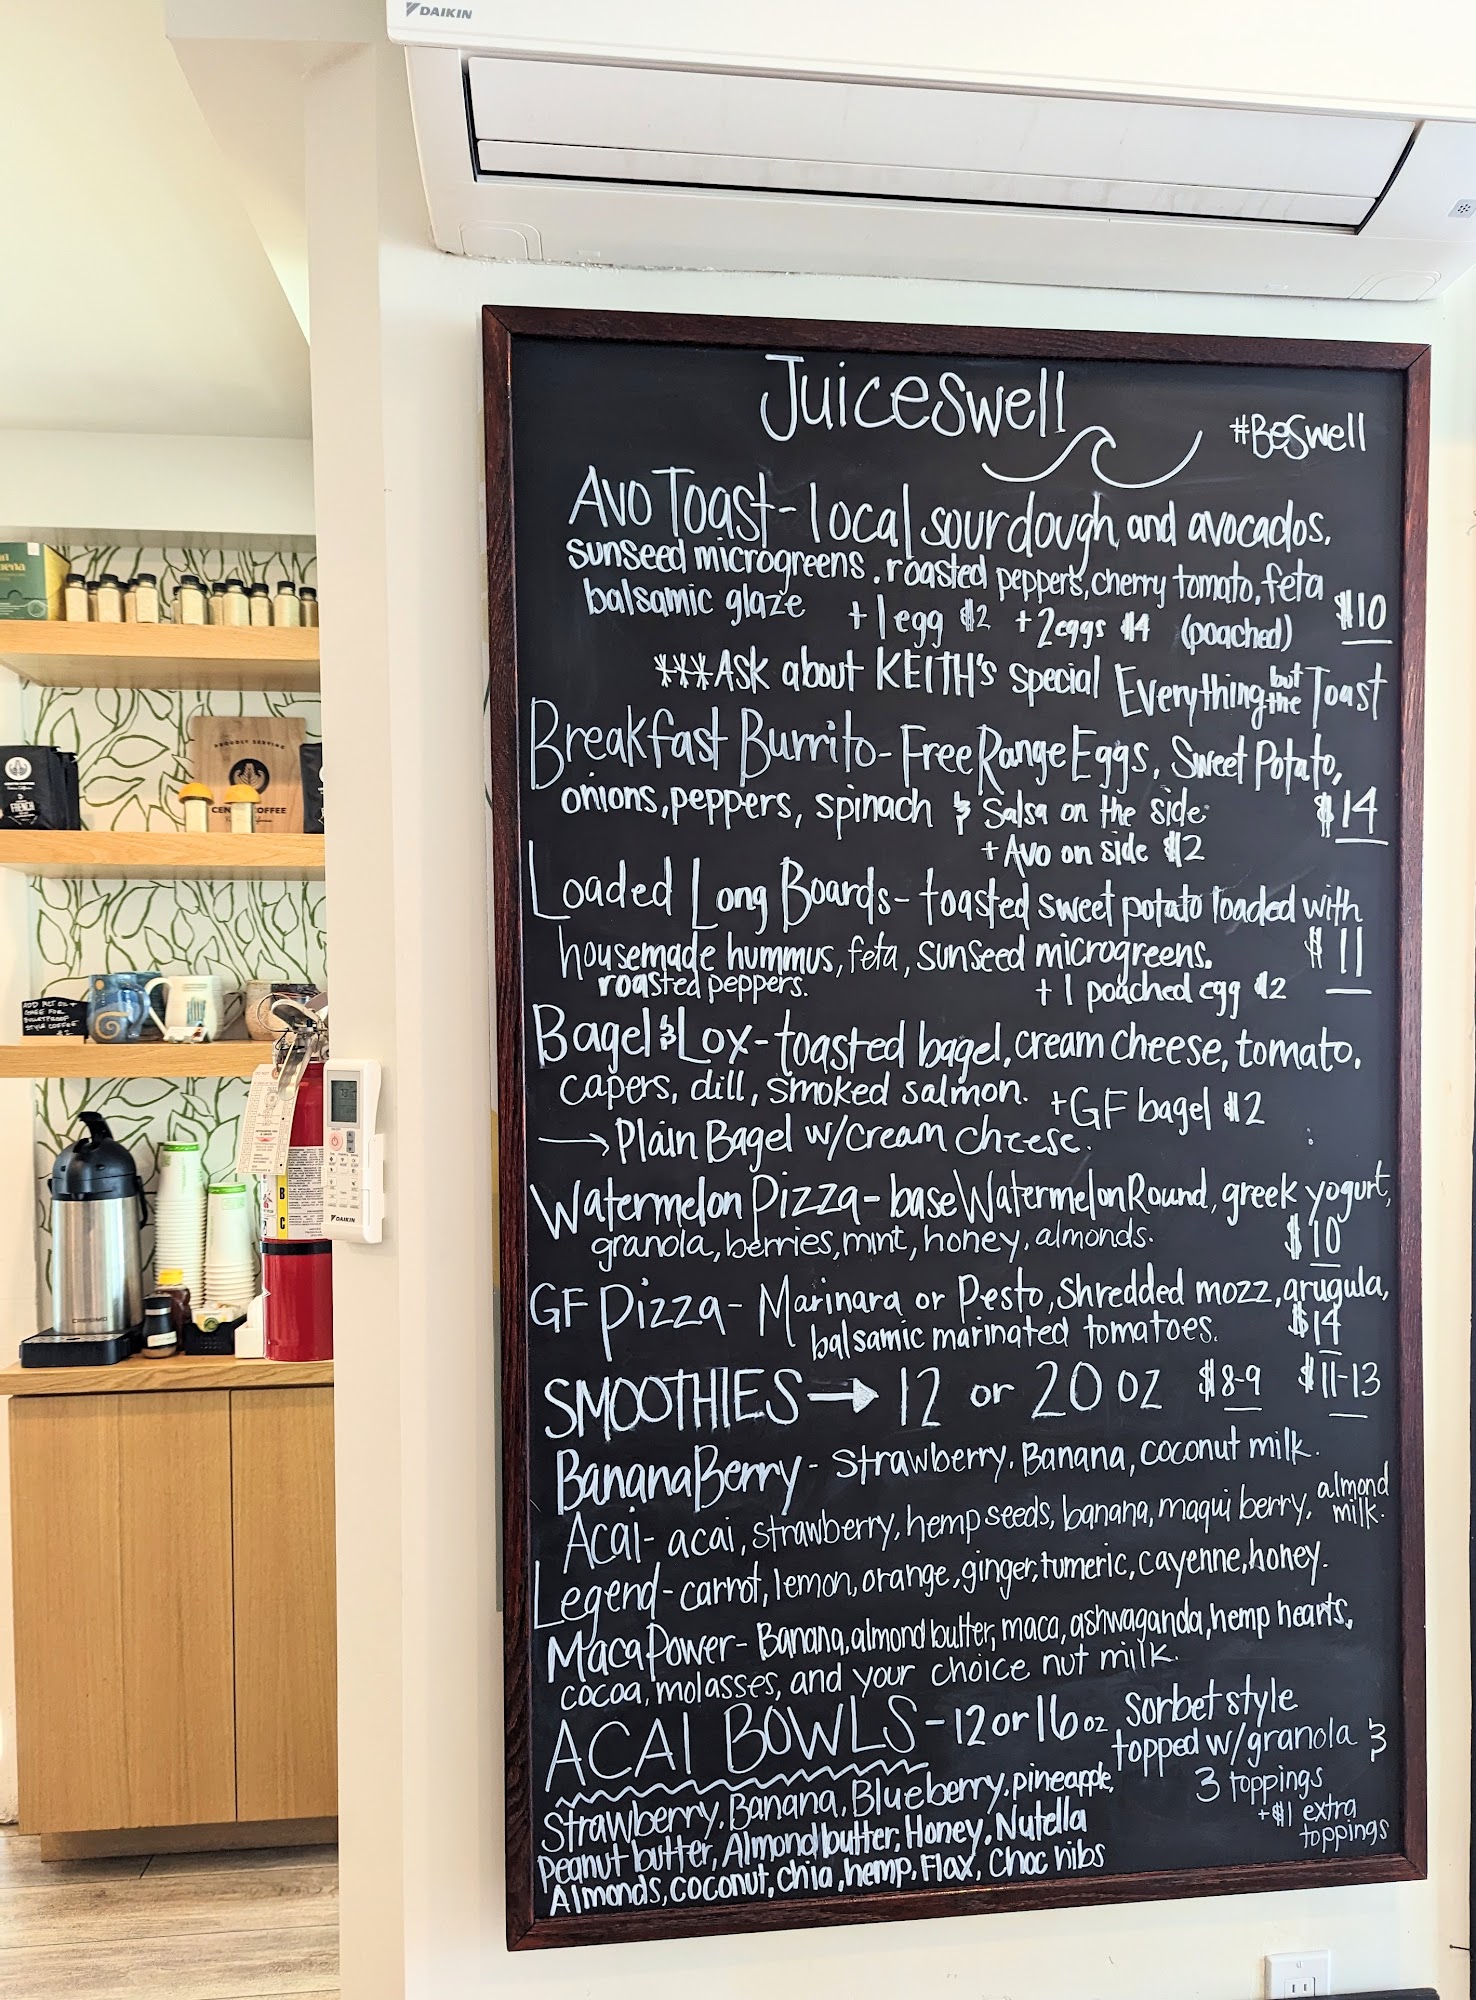 DAIKIN
Juiceswell
#BeSwell
Avo Toast - local sourdough and avocados,
sunseed microgreens, roasted peppers, cherry tomato, feta
balsamic glaze +1 egg $2 +2eggs $4 (poached) $10
***Ask about KEITH's special Everything but the Toast
Breakfast Burrito - Free Range Eggs, Sweet Potato,
onions, peppers, spinach & Salsa on the side $14
+ Avo on side $2
Loaded Long Boards - toasted sweet potato loaded with
housemade hummus, feta, sunseed microgreens. $11
roasted peppers. +1 poached egg $2
Bagel & Lox - toasted bagel, cream cheese, tomato,
capers, dill, smoked salmon. +GF bagel $2
→ Plain Bagel w/cream cheese.
Watermelon Pizza - base Watermelon Round, greek yogurt,
granola, berries, mint, honey, almonds. $10
GF Pizza - Marinara or Pesto, shredded mozz, arugula,
balsamic marinated tomatoes. $14
SMOOTHIES → 12 or 20 oz $8-9 $11-13
BananaBerry - strawberry, Banana, coconut milk.
Acai - acai, strawberry, hemp seeds, banana, maqui berry, almond milk.
Legend - carrot, lemon, orange, ginger, tumeric, cayenne, honey.
Maca Power - Banana, almond butter, maca, ashwaganda, hemp hearts,
cocoa, molasses, and your choice nut milk.
ACAI BOWLS - 12 or 16 oz Sorbet style
topped w/granola &
3 toppings
+$1 extra
toppings
Strawberry, Banana, Blueberry, pineapple,
Peanut butter, Almond butter, Honey, Nutella
Almonds, coconut, chia, hemp, Flax, Choc nibs
PROUDLY SERVING
COFFEE
ADD MCT OIL +
GHEE FOR
BULLETPROOF
STYLE COFFEE
B
C
DAIKIN